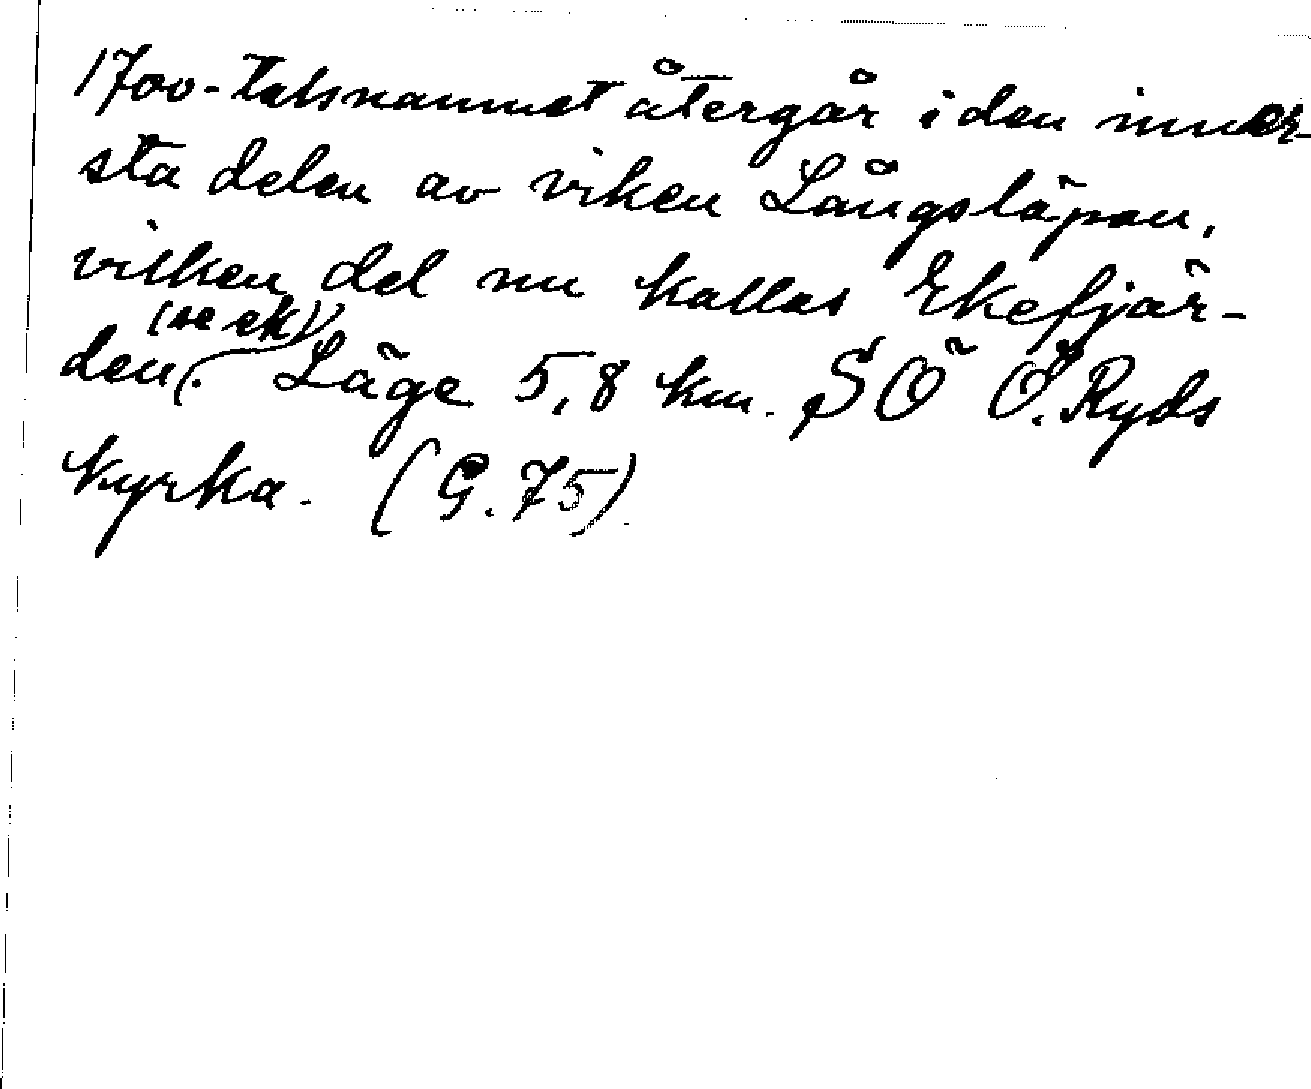 1700-talsnamnet återgår i den inner-
sta delen av viken Långsläpan,
vilken del nu kallas Ekefjär-
(se ek)
den. Läge 5,8 km. SÖ Ö. Ryds
kyrka. (G. 75)